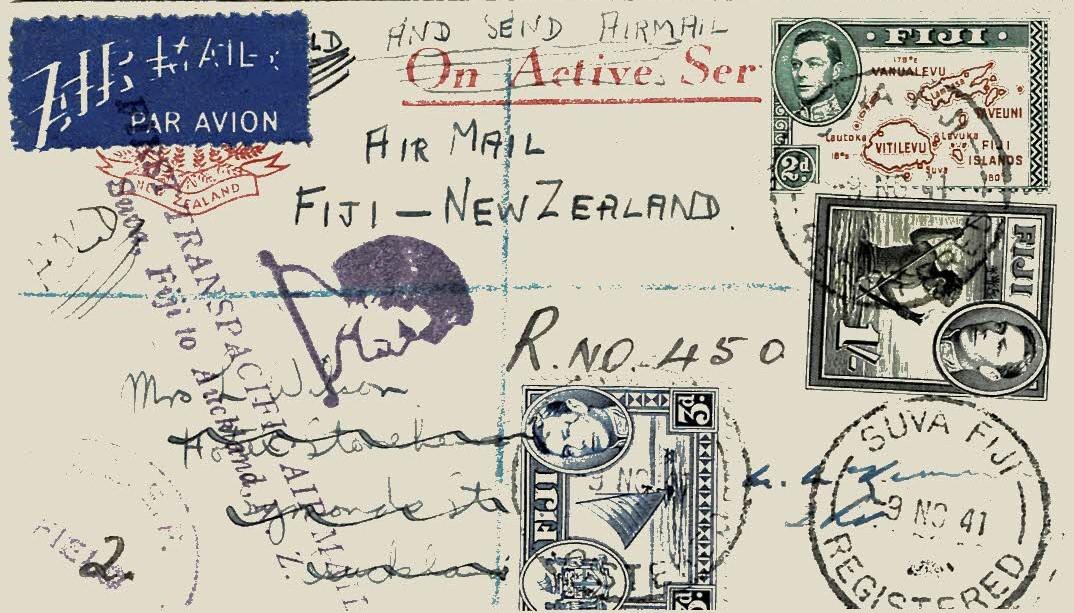 AND SEND AIRMAIL
On Active Ser
AIR MAIL
PAR AVION
NEW ZEALAND
AIR MAIL
FIJI – NEW ZEALAND
FIRST TRANSPACIFIC AIR MAIL
Suva, Fiji to Auckland, N. Z.
R. NO. 450
Mrs L Wilson
Symonds St
Auckland
2
FIJI
178°E
VANUALEVU
TAVEUNI
Lautoka
Levuka
VITILEVU
FIJI
ISLANDS
18°S
Suva
180°
2d.
9 NO 41
FIJI
1/-
FIJI
3d.
3d.
9 NO
SUVA FIJI
9 NO 41
REGISTERED